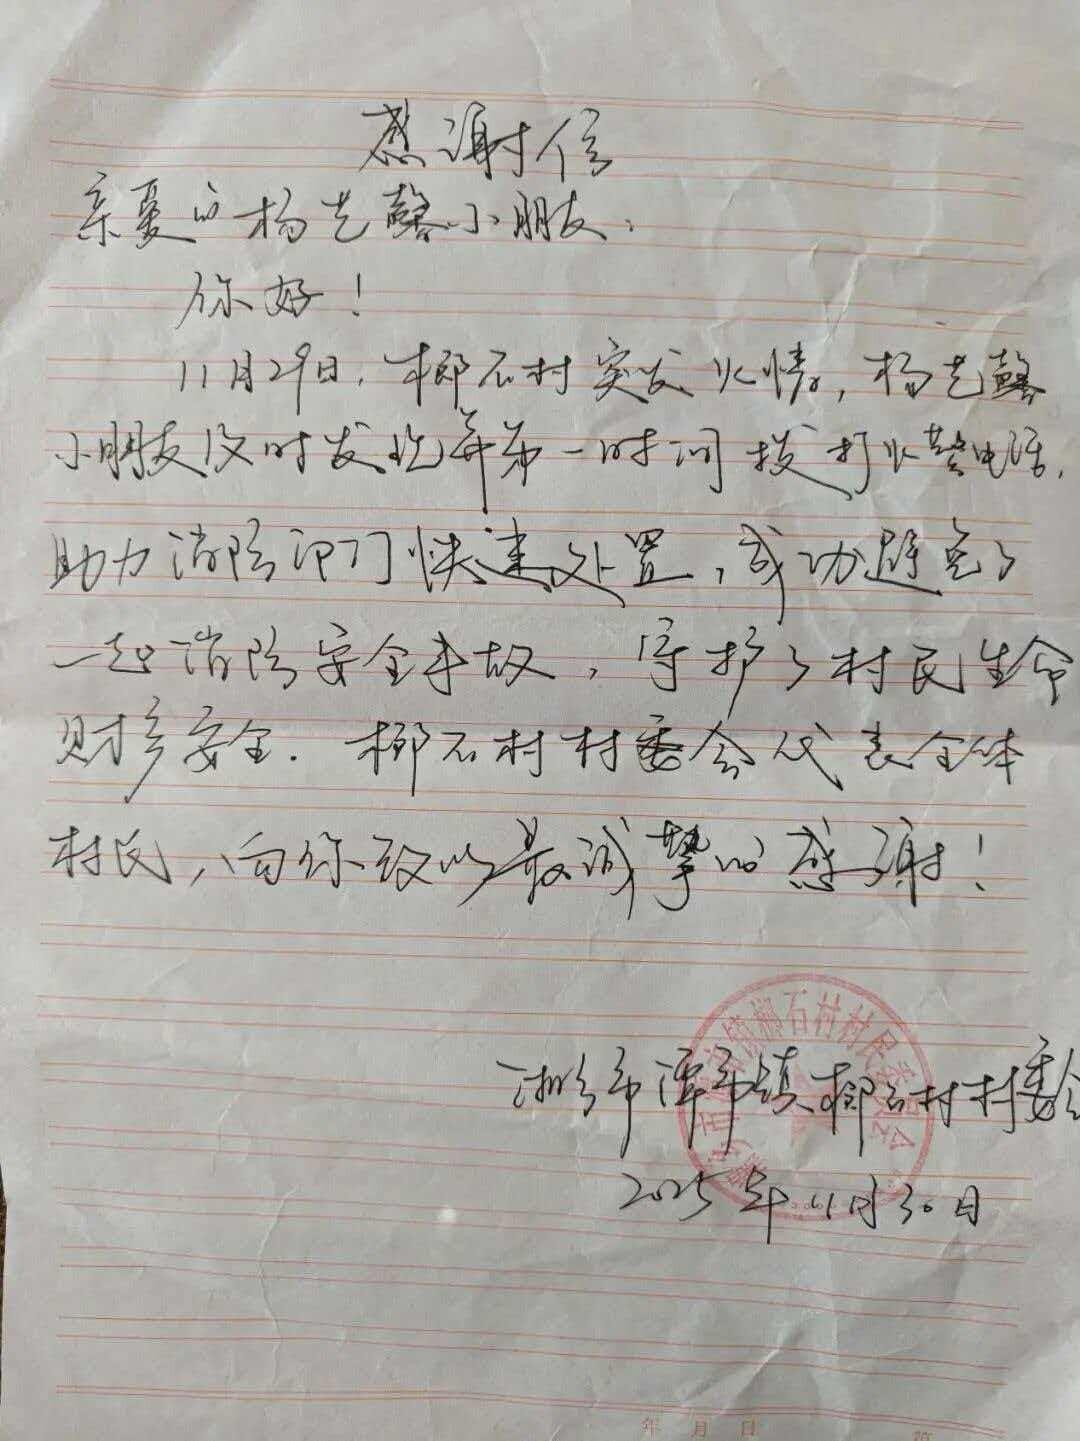 感谢信
亲爱的杨艺馨小朋友：
你好！
11月29日，榔石村突发火情，杨艺馨
小朋友及时发现并第一时间拨打火警电话，
助力消防部门快速处置，成功避免了
一起消防安全事故，守护了村民生命
财产安全。榔石村村委会代表全体
村民，向你致以最诚挚的感谢！
镇榔石村村民委员会
湘乡市潭市镇榔石村村委会
2025年11月30日
年 月 日